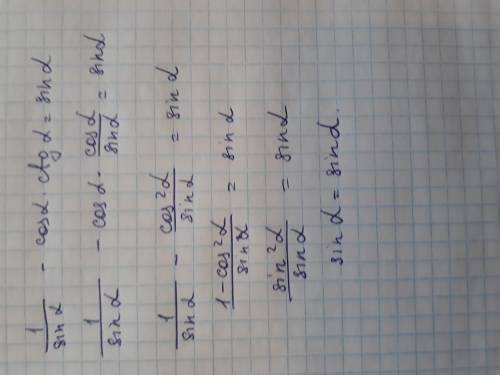 1/sin α - cos α · ctg α = sin α
1/sin α - cos α · cos α/sin α = sin α
1/sin α - cos²α/sin α = sin α
1-cos²α/sin α = sin α
sin²α/sin α = sin α
sin α = sin α.